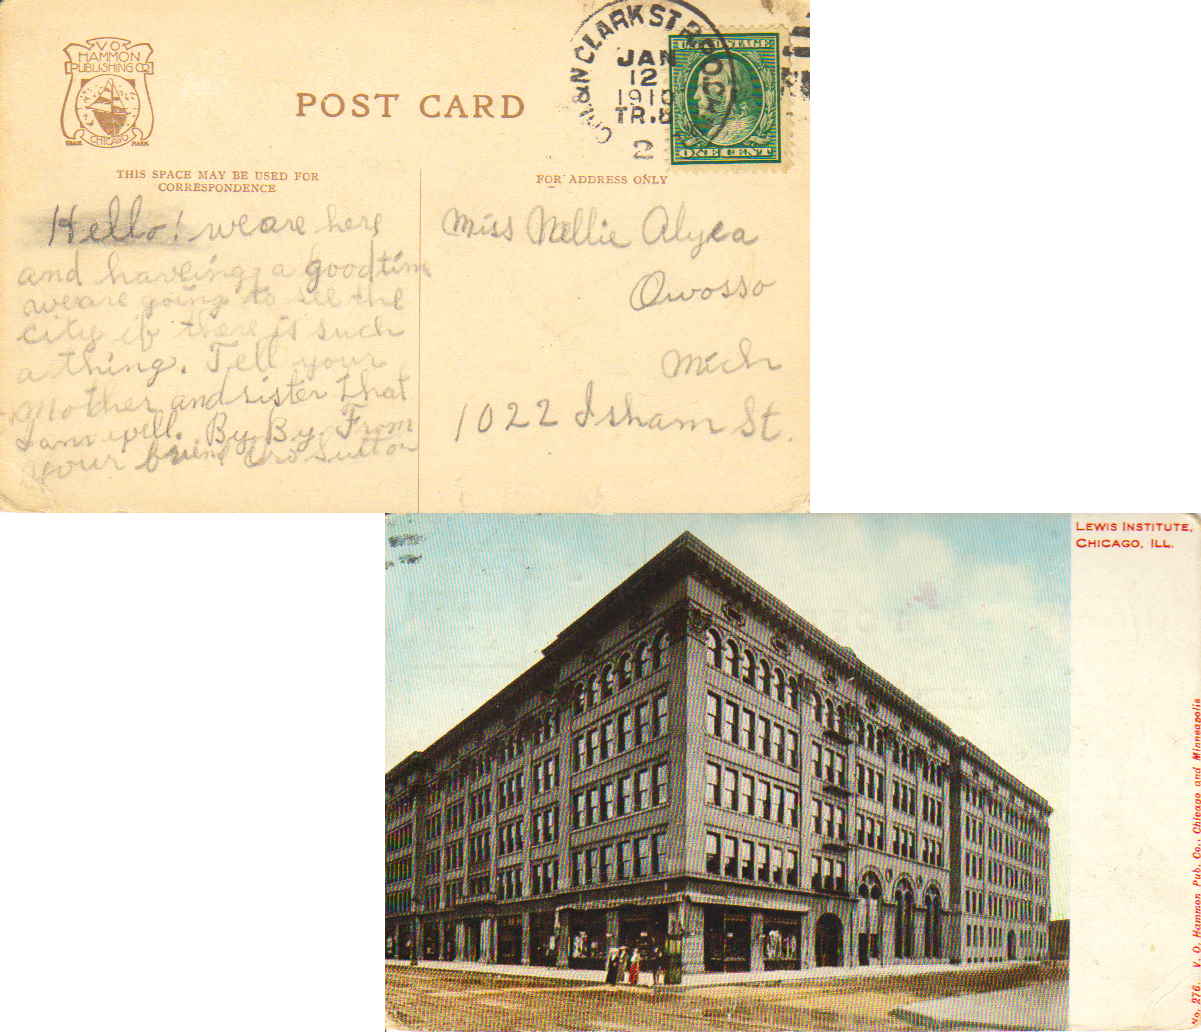 V.O.
HAMMON
PUBLISHING CO
CHICAGO
TRADE MARK
POST CARD
CHI. & N CLARK ST R.P.O.
JAN
12
1910
TR.8
2
U.S. POSTAGE
ONE CENT
THIS SPACE MAY BE USED FOR
CORRESPONDENCE
FOR ADDRESS ONLY
Hello! we are here
and haveing a good time
we are going to see the
city if there is such
a thing. Tell your
Mother and sister that
I am well. By By. From
your friend Sutton
Miss Nellie Alyea
Owosso
Mich
1022 Isham St.
LEWIS INSTITUTE,
CHICAGO, ILL.
No. 276. V. O. Hammon Pub. Co., Chicago and Minneapolis